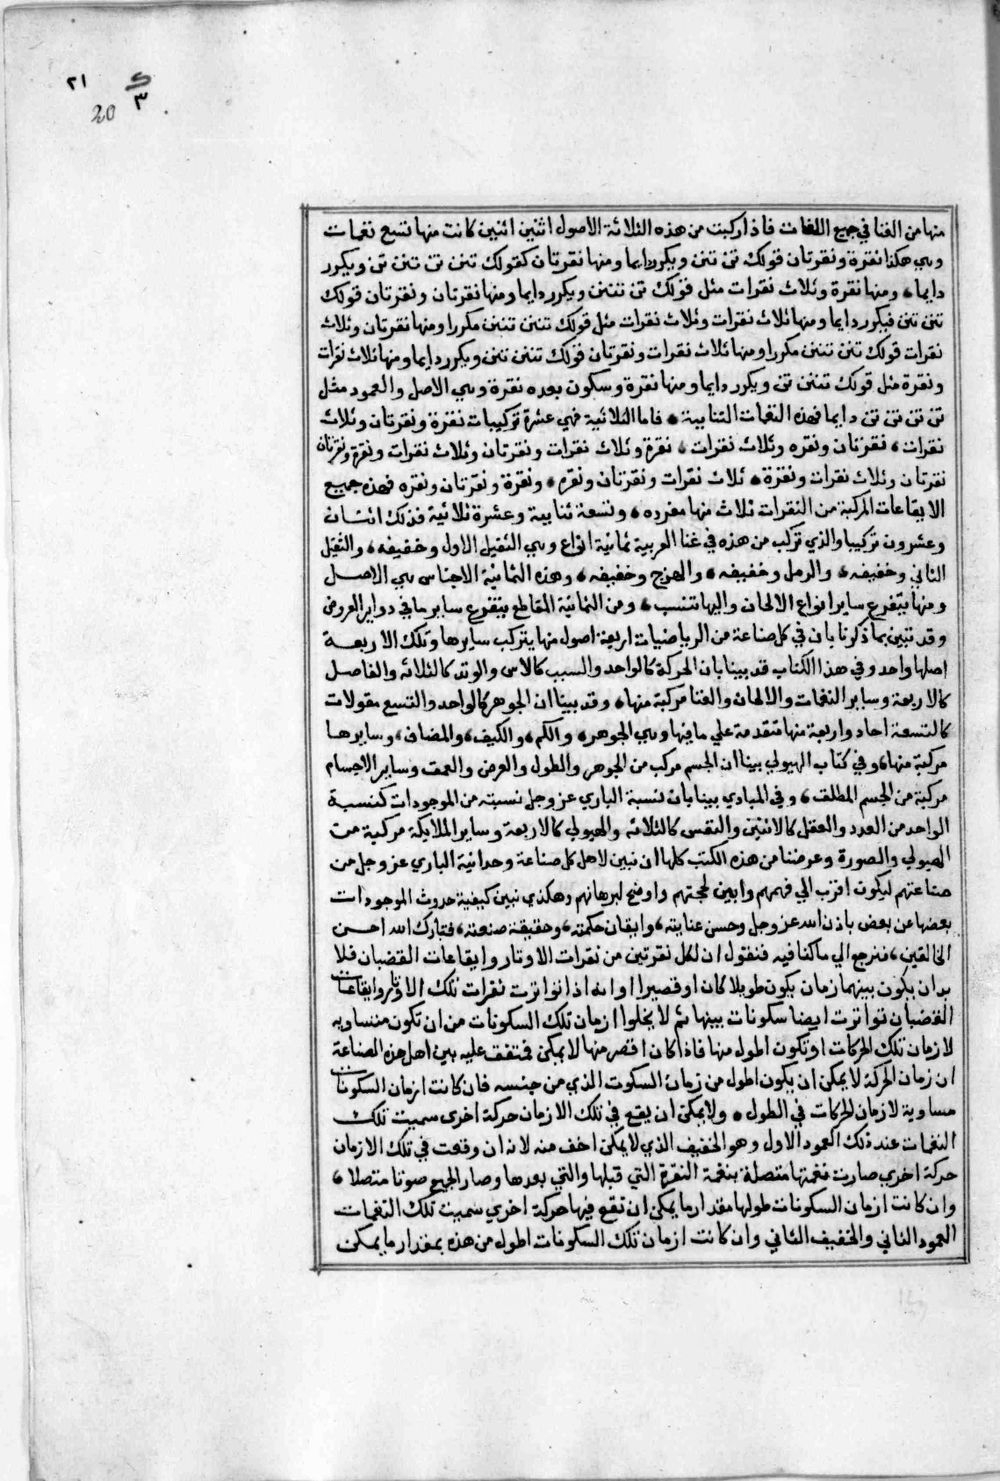 ٢١
ك
٣
20
منها من الغنا في جميع اللغات فاذا ركبت من هذه الثلاثة الاصول اثنين اثنين كانت منها تسع نغمات
وهي هكذا نقرة ونقرتان قولك تن تنن ويكرر دايما ومنها نقرتان كقولك تنن تن تنن تن ويكرر
دايما، ومنها نقرة وثلاث نقرات مثل قولك تن تننن ويكرر دايما ومنها نقرتان ونقرتان قولك
تنن تنن فيكرر دايما ومنها ثلاث نقرات وثلاث نقرات مثل قولك تننن تننن مكررا ومنها نقرتان وثلاث
نقرات قولك تنن تننن مكررا ومنها ثلاث نقرات ونقرتان قولك تننن تنن ويكرر دايما ومنها ثلاث نقرات
ونقرة مثل قولك تننن تن ويكرر دايما ومنها نقرة وسكون بعده نقرة وهي الاصل والعمود مثل
تن تن تن تن دايما فهذه النغمات الثنايية، فاما الثلاثية فهي عشرة تركيبات نقرة ونقرتان وثلاث
نقرات، نقرتان ونقره وثلاث نقرات، نقرة وثلاث نقرات ونقرتان وثلاث نقرات ونقرة ونقرتان
نقرتان وثلاث نقرات ونقرة، ثلاث نقرات ونقرتان ونقرة، ونقرة ونقرتان ونقره فهذه جميع
الايقاعات المركبة من النقرات ثلاث منها مفرده، وتسعة ثنايية وعشرة ثلاثية فذلك اثنان
وعشرون تركيبا والذي تركب من هذه في غنا العربية ثمانية انواع وهي الثقيل الاول وخفيفه، والثقيل
الثاني وخفيفه، والرمل وخفيفه، والهزج وخفيفه، وهذه الثمانية الاجناس هي الاصل
ومنها يتفرع ساير انواع الالحان واليها تنسب، ومن الثمانية المقاطع يتفرع ساير ما في دواير العروض
وقد تبين بما ذكرنا بان في كل صناعة من الرياضيات اربعة اصول منها يتركب سايرها وتلك الاربعة
اصلها واحد وفي هذا الكتاب قد بينا بان الحركة كالواحد والسبب كالاس والوتد كالثلاثه والفاصل
كالاربعة وساير النغمات والالحان والغنا مركبة منها، وقد بينا ان الجوهر كالواحد والتسع مقولات
كالتسعة احاد واربعة منها متقدمة علي ما فيها وهي الجوهر، والكم، والكيف، والمضاف، وسايرها
مركبة منها، وفي كتاب الهيولي بينا ان الجسم مركب من الجوهر والطول والعرض والعمق وساير الاجسام
مركبة من الجسم المطلق، وفي المبادي بينا بان نسبة الباري عز وجل نسبته من الموجودات كنسبة
الواحد من العدد والعقل كالاثنين والنفس كالثلاثه والهيولي كالاربعة وساير الملايكة مركبة من
الهيولي والصورة وعرضنا من هذه الكتب كلها ان نبين لاهل كل صناعة وحدانية الباري عز وجل من
صناعتهم ليكون اقرب الي فهمهم وابين لحجتهم واوضح لبرهانهم وهكذي نبين كيفية حدوث الموجودات
بعضها عن بعض باذن الله عز وجل وحسن عنايته، وايقان حكمته، وحقيقة صنعته، فتبارك الله احسن
الخالقين، فنرجع الي ما كنا فيه فنقول ان لكل نقرتين من نقرات الاوتار وايقاعات القضبان فلا
بد ان يكون بينهما زمان يكون طويلا كان او قصيرا او انه اذا تواترت نقرات تلك الاوتار وايقاعات
القضبان تواترت ايضا سكونات بينها ثم لا يخلوا ازمان تلك السكونات من ان تكون متساويه
لازمان تلك الحركات او تكون اطول منها فاذا كان اقصر منها لا يمكن فمتفق عليه بين اهل هذه الصناعة
ان زمان الحركة لا يمكن ان يكون اطول من زمان السكوت الذي من جنسه فان كانت ازمان السكونات
مساوية لازمان الحركات في الطول، ولا يمكن ان يقع في تلك الازمان حركة اخرى سميت تلك
النغمات عند ذلك العمود الاول وهو الخفيف الذي لا يمكن اخف منه لانه ان وقعت في تلك الازمان
حركة اخري صارت نغمتها متصلة بنغمة النقرة التي قبلها والتي بعدها وصار الجميع صوتا متصلا،
وان كانت ازمان السكونات طولها مقدار ما يمكن ان تقع فيها حركة اخري سميت تلك النغمات
العمود الثاني والخفيف الثاني وان كانت ازمان تلك السكونات اطول من هذه بمقدار ما يمكن